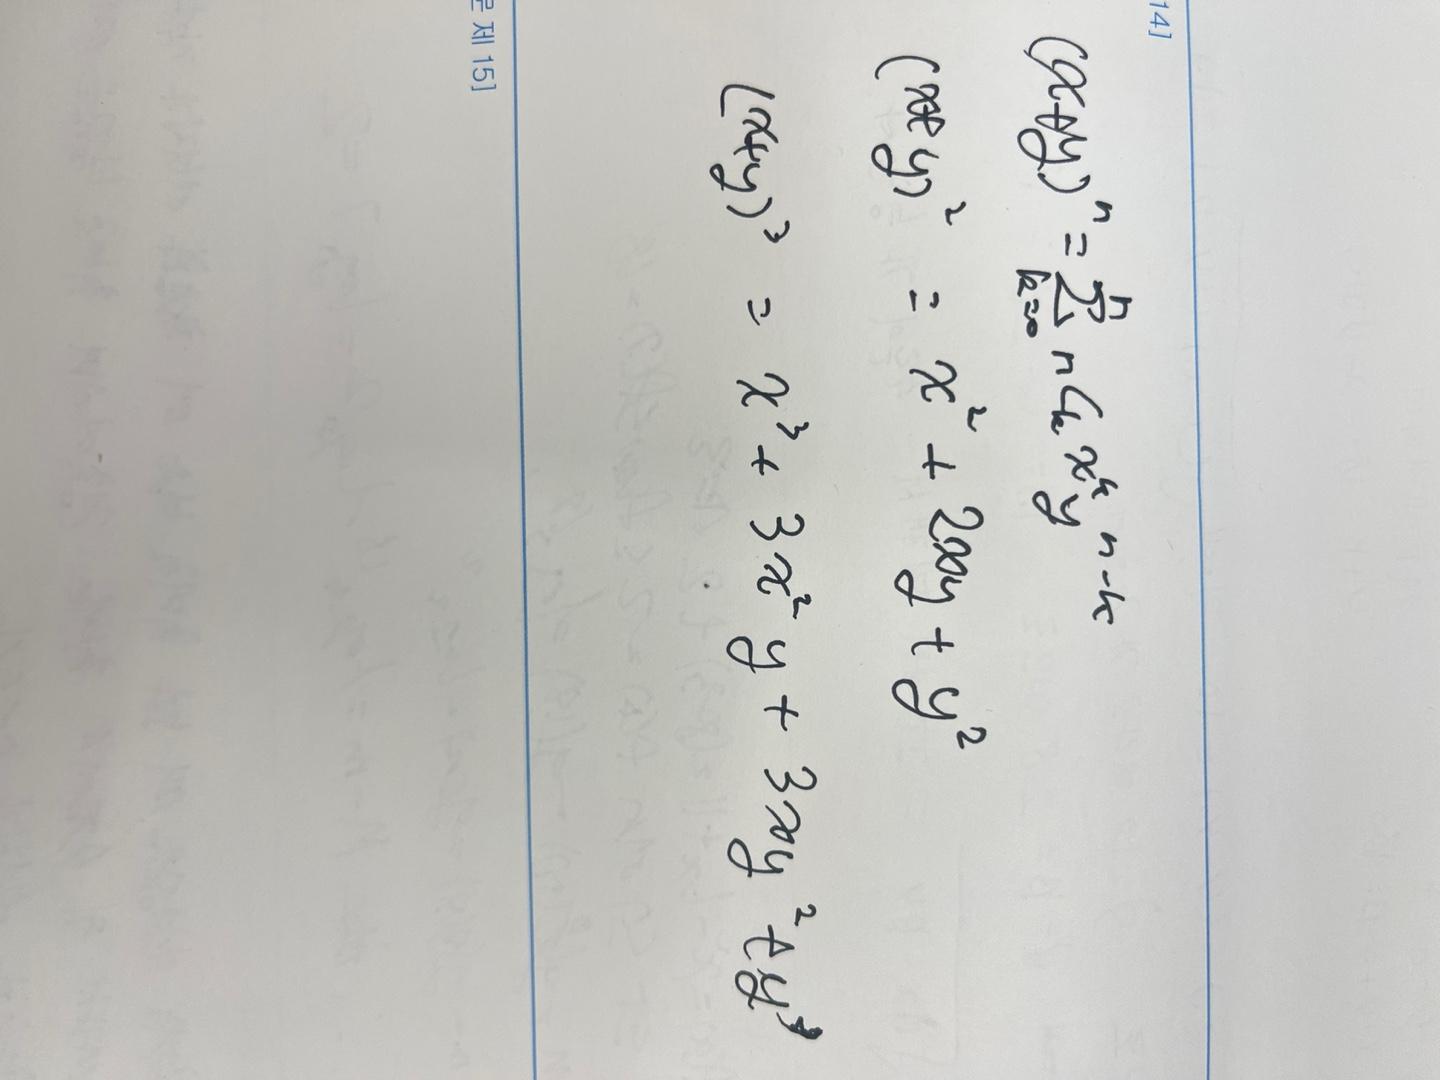 14]
(x+y)ⁿ = ∑ⁿₖ₌₀ nCₖ xᵏ yⁿ⁻ᵏ
(x+y)² = x² + 2xy + y²
(x+y)³ = x³ + 3x²y + 3xy² + y³
문제 15]